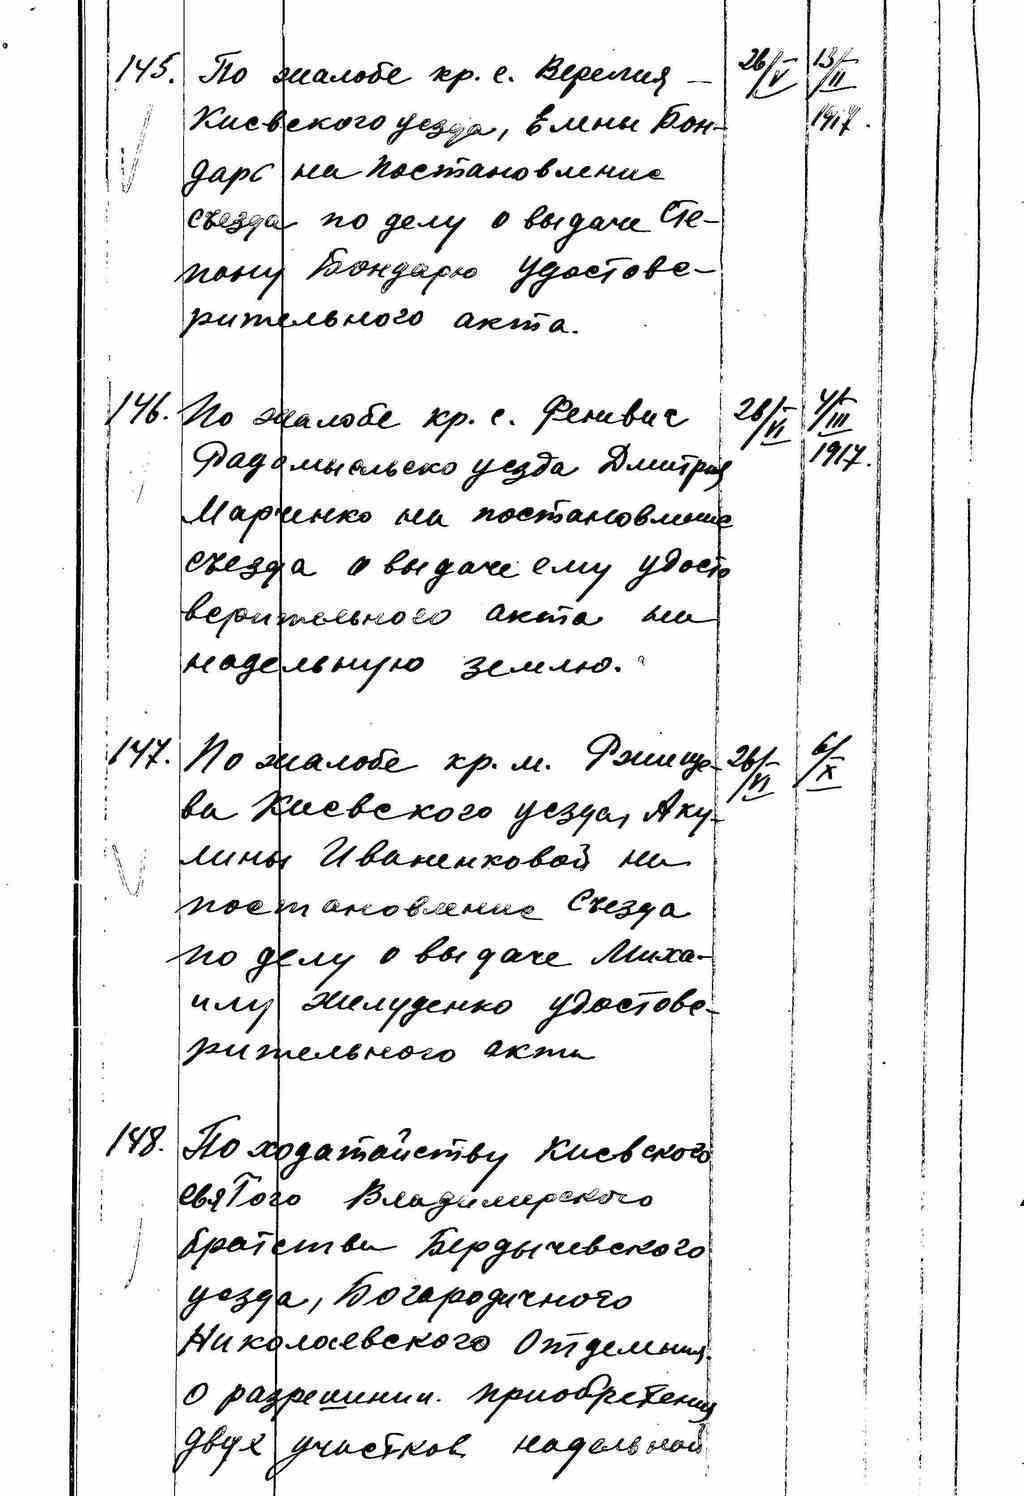 145. По жалобе кр. с. Веремия — 26/V 13/II
Киевского уезда, Елены Бон- 1917.
дарь на постановление
съезда по делу о выдаче Сте-
пану Бондарю удостове-
рительного акта.
146. По жалобе кр. с. Феневич 26/VI 4/III
Радомысльско уезда Дмитрия 1917.
Маринко на постановление
съезда о выдаче ему удосто
верительного акта на
надельную землю.
147. По жалобе кр. м. Ржище- 26/VI 6/X
ва Киевского уезда, Аку-
лины Иваненковой на
постановление Съезда
по делу о выдаче Миха-
илу Желуденко удостове-
рительного акта
148. По ходатайству Киевского
святого Владимирского
братства Бердычевского
уезда, Богородичного
Николаевского Отделения
о разрешении приобретения
двух участков надельной